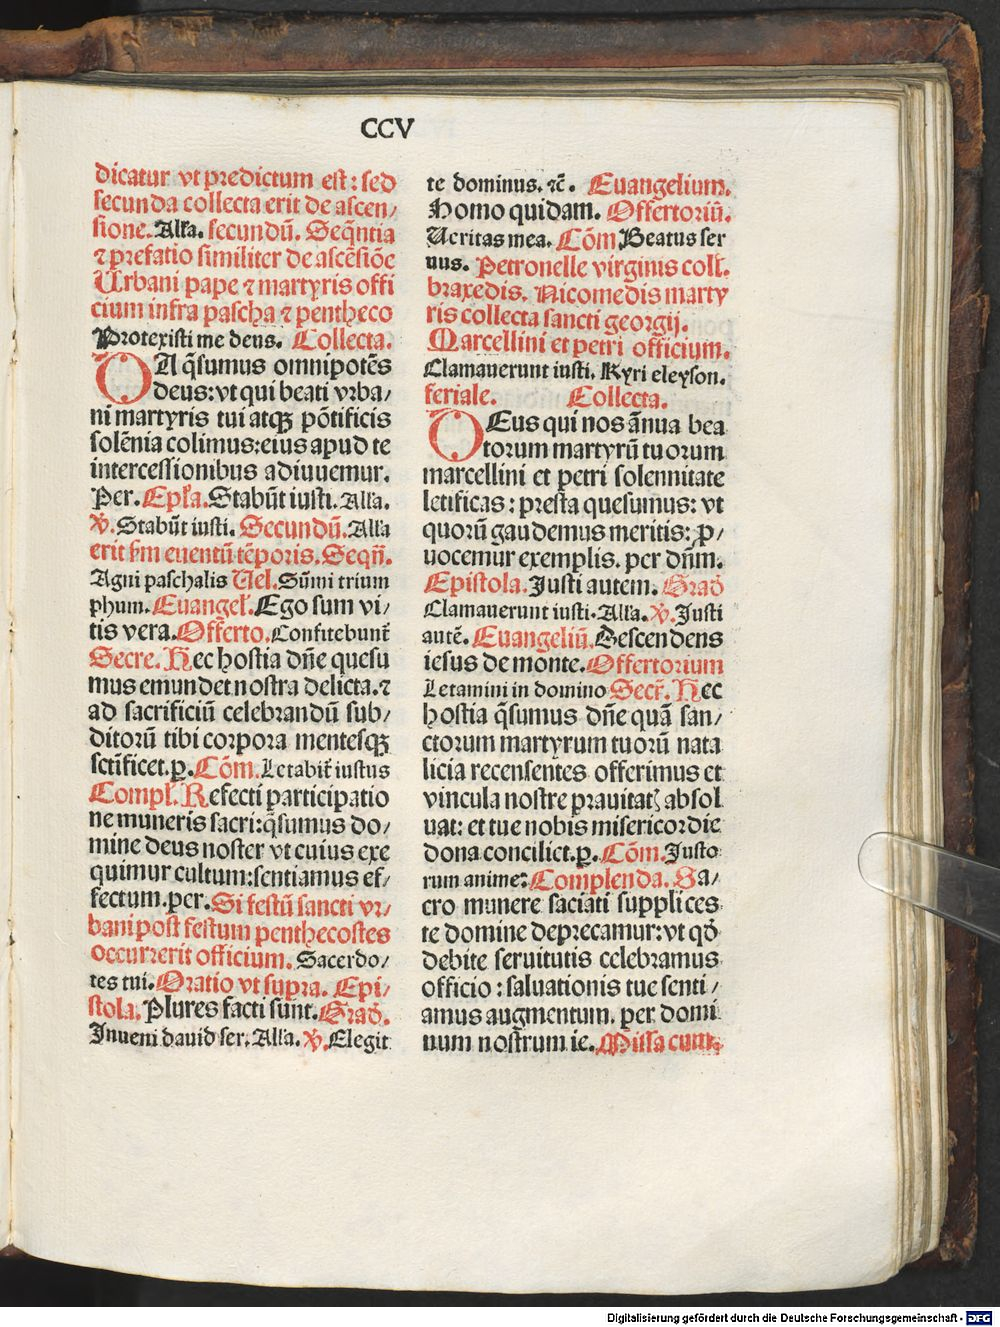 CCV
dicatur vt predictum est: sed
secunda collecta erit de ascen/
sione. Alla. secundū. Seq̄ntia
⁊ prefatio similiter de ascēsiōe
Urbani pape ⁊ martyris offi
cium infra pascha ⁊ pentheco
Protexisti me deus. Collecta.
DA q̄sumus omnipotēs
deus: vt qui beati vrba/
ni martyris tui atqꝫ pōtificis
solēnia colimus: eius apud te
intercessionibus adiuuemur.
Per. Epl̄a. Stabūt iusti. Alla.
℣. Stabūt iusti. Secundū. Alla
erit ſm euentū tēporis. Seqn̄.
Agni paschalis Uel. Sūmi trium
phum. Euangel̄. Ego sum vi/
tis vera. Offerto. Confitebunt̄
Secre. Hec hostia dn̄e quesu
mus emundet nostra delicta. ⁊
ad sacrificiū celebrandū sub/
ditorū tibi corpora mentesqꝫ
sctīficet. ꝑ. Cōm. Letabit̄ iustus
Compl̄. Refecti participatio
ne muneris sacri: q̄sumus do/
mine deus noster vt cuius exe
quimur cultum: sentiamus ef/
fectum. per. Si festū sancti vr/
bani post festum penthecostes
occurrerit officium. Sacerdo/
tes tui. Oratio vt supra. Epi/
stola. Plures facti sunt. Grad̄.
Inueni dauid ser. Alla. ℣. Elegit
te dominus. ⁊c̄. Euangelium.
Homo quidam. Offertoriū.
Ueritas mea. Cōm Beatus ser
uus. Petronelle virginis coll̄.
braxedis. Nicomedis marty
ris collecta sancti georgij.
Marcellini et petri officium.
Clamauerunt iusti. Kyri eleyson.
feriale. Collecta.
DEus qui nos ānua bea
torum martyrū tuorum
marcellini et petri solennitate
letificas: presta quesumus: vt
quorū gaudemus meritis: ꝓ/
uocemur exemplis. per dn̄m.
Epistola. Iusti autem. Grad̄
Clamauerunt iusti. Alla. ℣. Iusti
autē. Euangeliū. Descendens
iesus de monte. Offertorium
Letamini in domino Secr̄. Hec
hostia q̄sumus dn̄e quā san/
ctorum martyrum tuorū nata
licia recensentes offerimus et
vincula nostre prauitatꝭ absol
uat: et tue nobis misericordie
dona conciliet. ꝑ. Cōm. Iusto
rum anime: Complenda. Sa/
cro munere saciati supplices
te domine deprecamur: vt qd̄
debite seruitutis celebramus
officio: saluationis tue senti/
amus augmentum. per domi
num nostrum ie. Missa cum
Digitalisierung gefördert durch die Deutsche Forschungsgemeinschaft - DFG